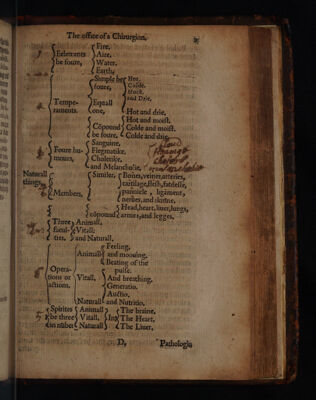 The office of a Chirurgion.
Fire.
Eelements
Aire.
be foure,
Water.
Earth,
Simple be Hot.
foure,
Colde.
Moist.
and Drie.
Tempe-
Equall
raments.
one,
Hot and drie.
Hot and moist.
Cōpoūd
Colde and moist.
be foure.
Colde and drie.
Sanguine.
Foure hu-
Flegmatike.
mours,
Cholerike.
and Melancholie.
Naturall
things,
Similer,
Bones, veines, arteries,
cartilage, flesh, fatnesse,
Members,
pannicle, ligament,
nerbes, and skinne.
Head, heart, liuer, lungs,
cōpound
armes, and legges.
Three
Animall,
facul-
Vitall;
ties.
and Naturall.
Feeling,
Animall
and moouing,
Beating of the
Opera-
pulse.
tions or
Vitall,
And breathing.
actions.
Generatio.
Auctio.
Naturall
and Nutritio.
Spirites
Animall
The braine.
be three
Vitall.
In
The Heart.
in nūber
Naturall
The Liuer,
D,
Pathologia